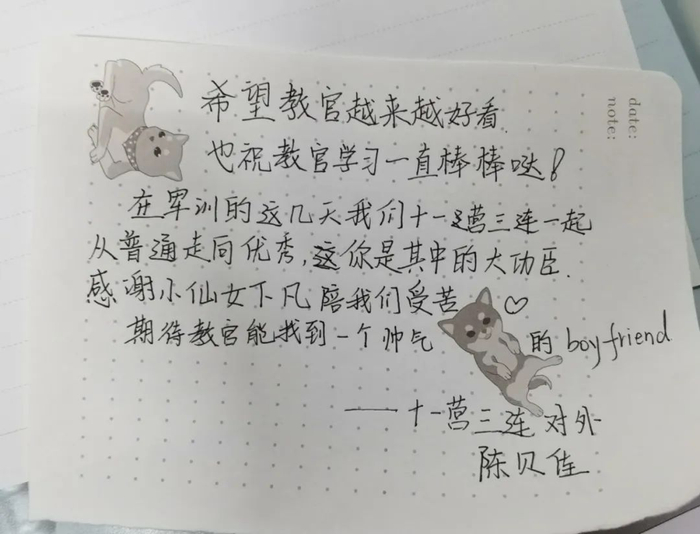 date:
note:
希望教官越来越好看
也祝教官学习一直棒棒哒!
在军训的这几天我们十一营三连一起
从普通走向优秀,这你是其中的大功臣.
感谢小仙女下凡陪我们受苦 ♡
期待教官能找到一个帅气 的 boyfriend
——十一营三连 对外
陈贝佳